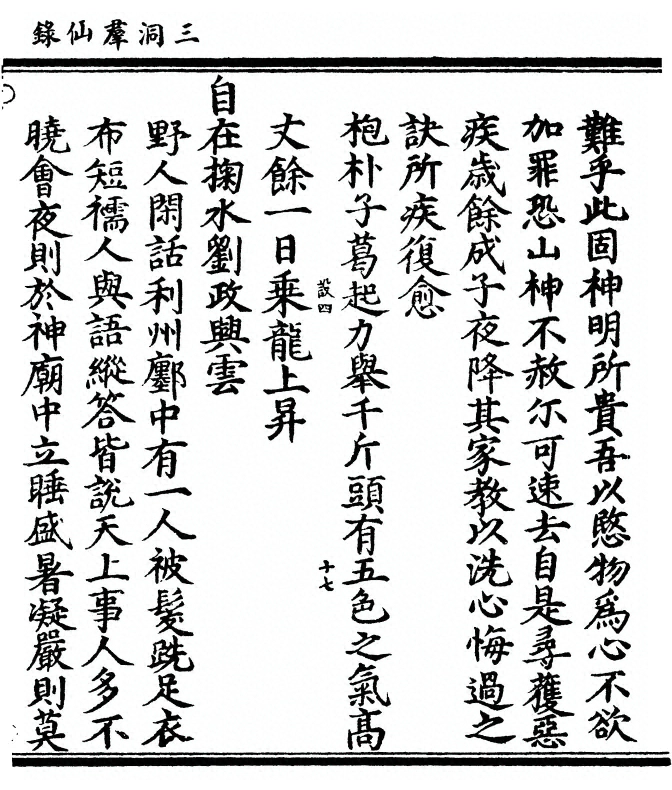 三洞羣仙錄
難乎此固神明所貴吾以愍物爲心不欲
加罪恐山神不赦尔可速去自是尋獲惡
疾歲餘成子夜降其家教以洗心悔過之
訣所疾復愈
抱朴子葛起力舉千斤頭有五色之氣高
設四
十七
丈餘一日乗龍上昇
自在掬水劉政興雲
野人閑話利州鄽中有一人被髮跣足衣
布短襦人與語縱答皆說天上事人多不
曉會夜則於神廟中立睡盛暑凝嚴則莫